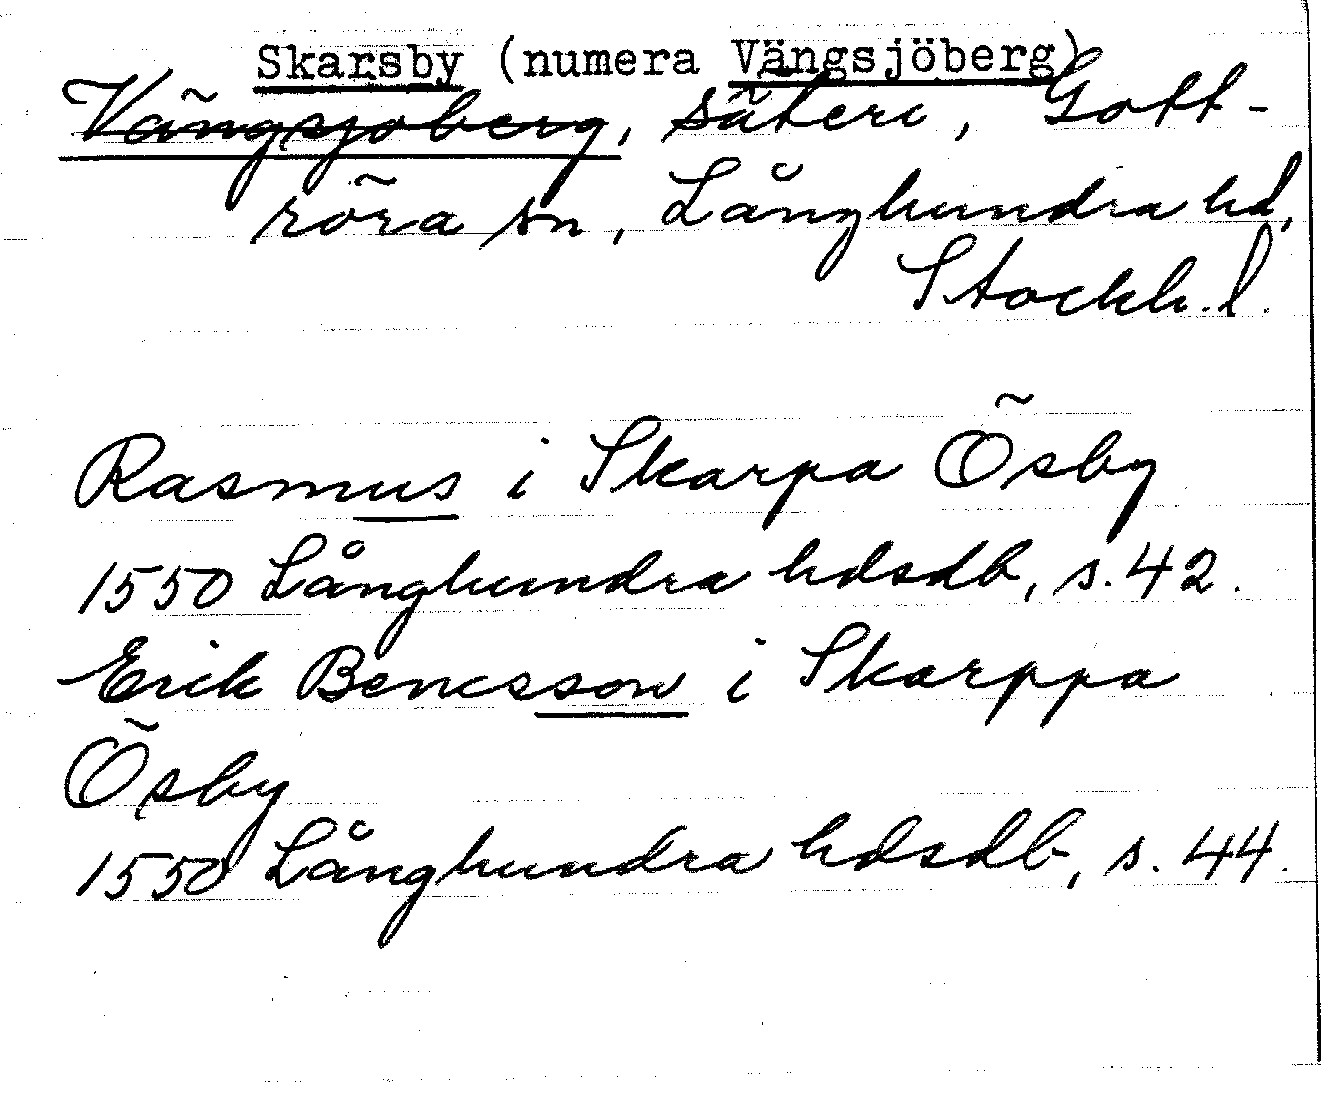 Skarsby (numera Vängsjöberg)
Vängsjöberg, säteri, Gott-
röra sn, Långhundra hd,
Stockh. l.
Rasmus i Skarpa Ösby
1550 Långhundra hdsdb, s. 42.
Erik Bencsson i Skarppa
Ösby
1550 Långhundra hdsdb, s. 44.